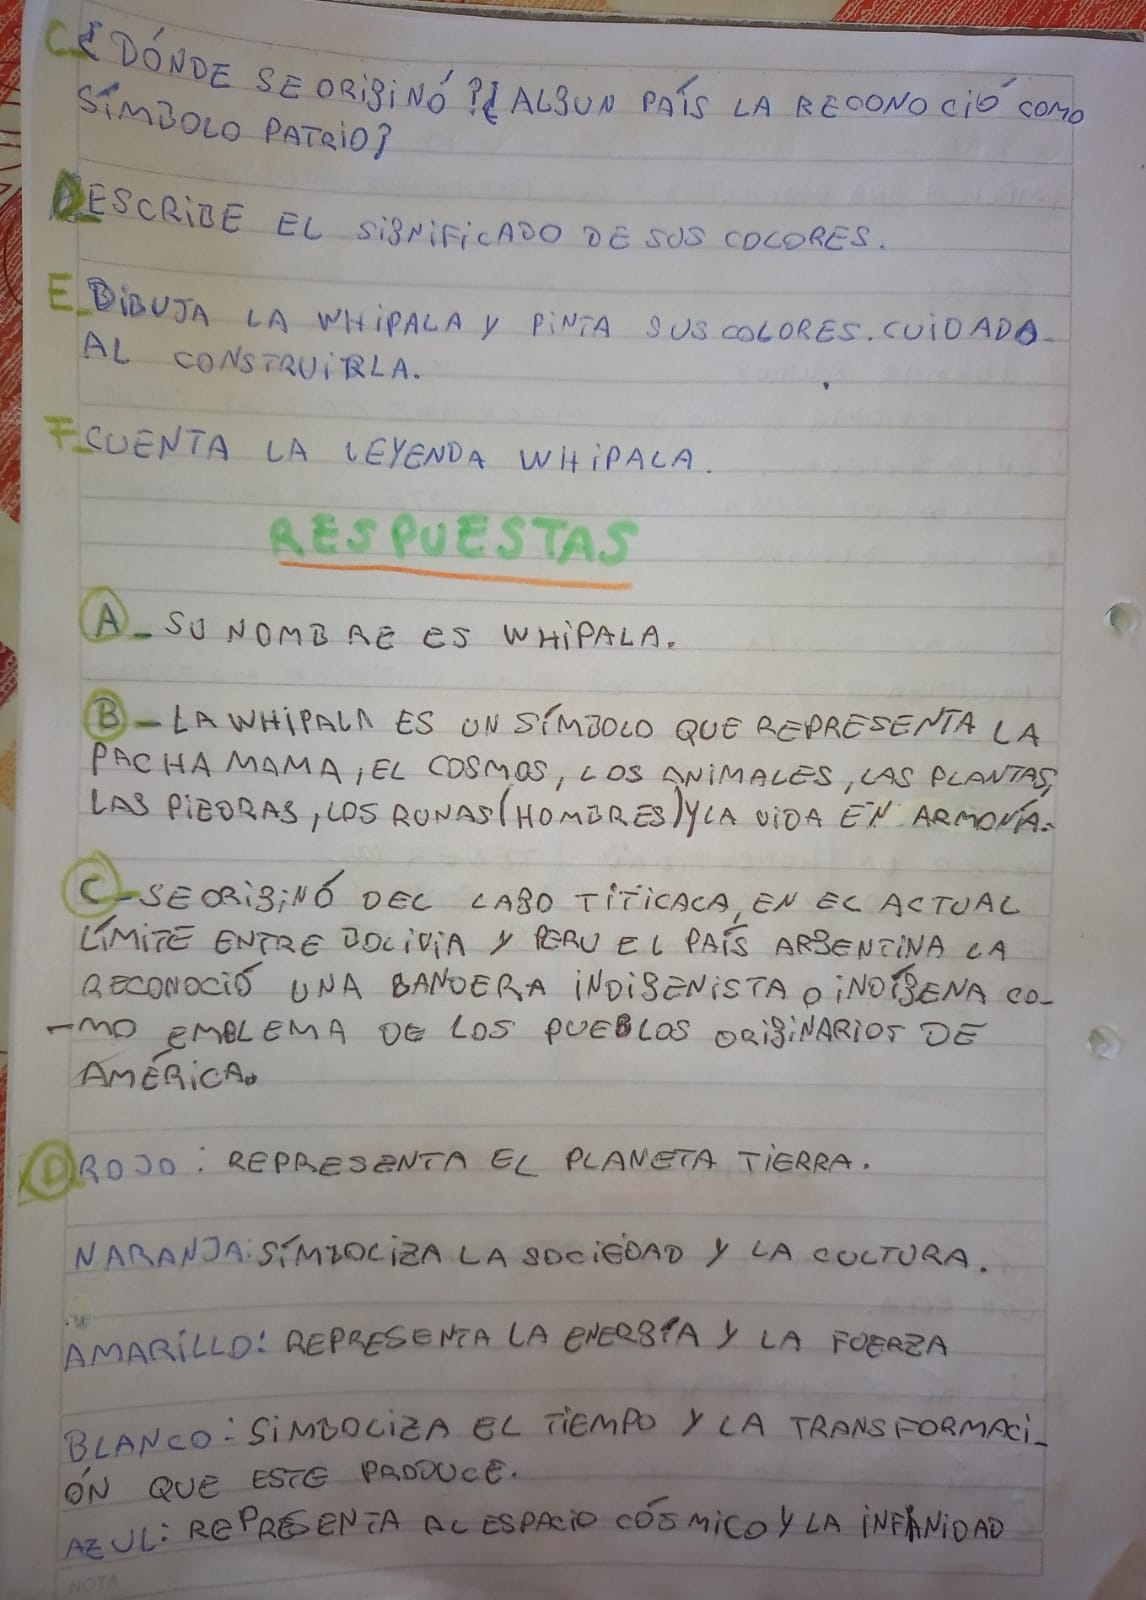 C_¿DÓNDE SE ORIGINÓ?¿ALGUN PAÍS LA RECONOCIÓ COMO
SÍMBOLO PATRIO?
DESCRIBE EL SIGNIFICADO DE SUS COLORES.
E_DIBUJA LA WHIPALA Y PINTA SUS COLORES. CUIDADO
AL CONSTRUIRLA.
F_CUENTA LA LEYENDA WHIPALA.
RESPUESTAS
A_ SU NOMBRE ES WHIPALA.
B_LA WHIPALA ES UN SÍMBOLO QUE REPRESENTA LA
PACHA MAMA, EL COSMOS, LOS ANIMALES, LAS PLANTAS,
LAS PIEDRAS, LOS RUNAS (HOMBRES) Y LA VIDA EN ARMONÍA.
C_SE ORIGINÓ DEL LAGO TÍTICACA, EN EL ACTUAL
LÍMITE ENTRE BOLIVIA Y PERU EL PAÍS ARGENTINA LA
RECONOCIÓ UNA BANDERA INDIGENISTA O INDÍGENA CO-
-MO EMBLEMA DE LOS PUEBLOS ORIGINARIOS DE
AMÉRICA.
D ROJO: REPRESENTA EL PLANETA TIERRA.
NARANJA: SÍMBOLIZA LA SOCIEDAD Y LA CULTURA.
AMARILLO: REPRESENTA LA ENERGÍA Y LA FUERZA
BLANCO: SIMBOLIZA EL TIEMPO Y LA TRANSFORMACI-
ÓN QUE ESTE PRODUCE.
AZUL: REPRESENTA AL ESPACIO CÓSMICO Y LA INFINIDAD
NOTA